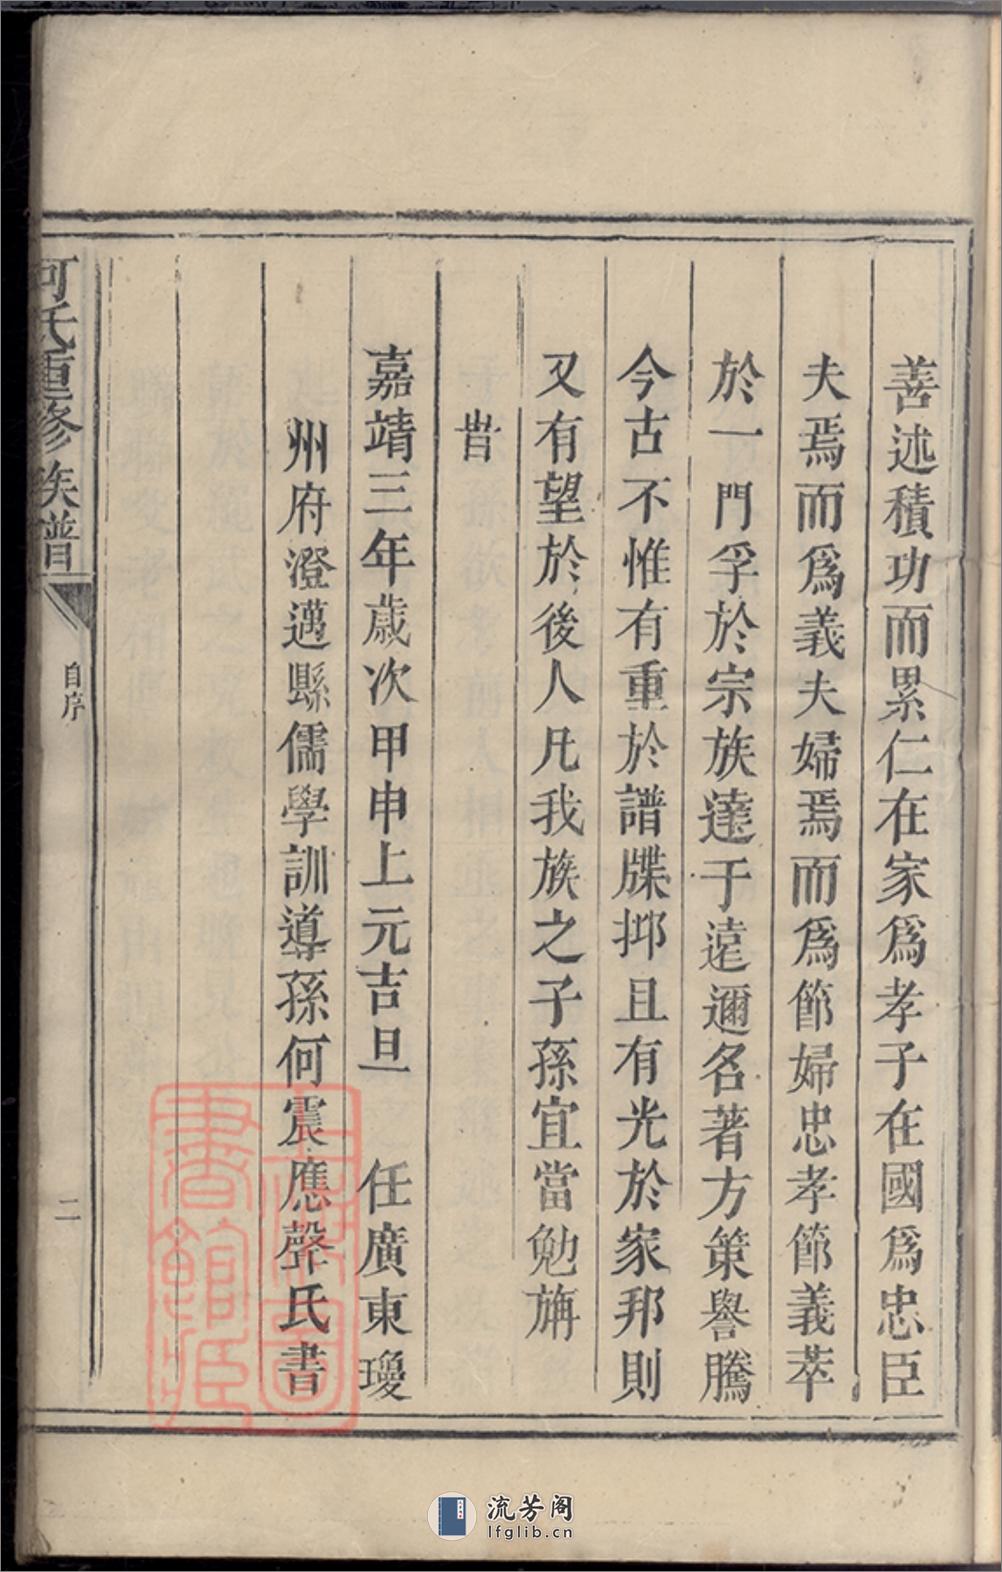 善述積功而累仁在家爲孝子在國爲忠臣
夫焉而爲義夫婦焉而爲節婦忠孝節義萃
於一門孚於宗族達于遠邇名著方策譽騰
今古不惟有重於譜牒抑且有光於家邦則
又有望於後人凡我族之子孫宜當勉旃
旹
嘉靖三年歲次甲申上元吉旦 任廣東瓊
州府澄邁縣儒學訓導孫何震應聲氏書
何氏重修族譜
自序
二
圖
書館藏
流芳阁
lfglib.cn